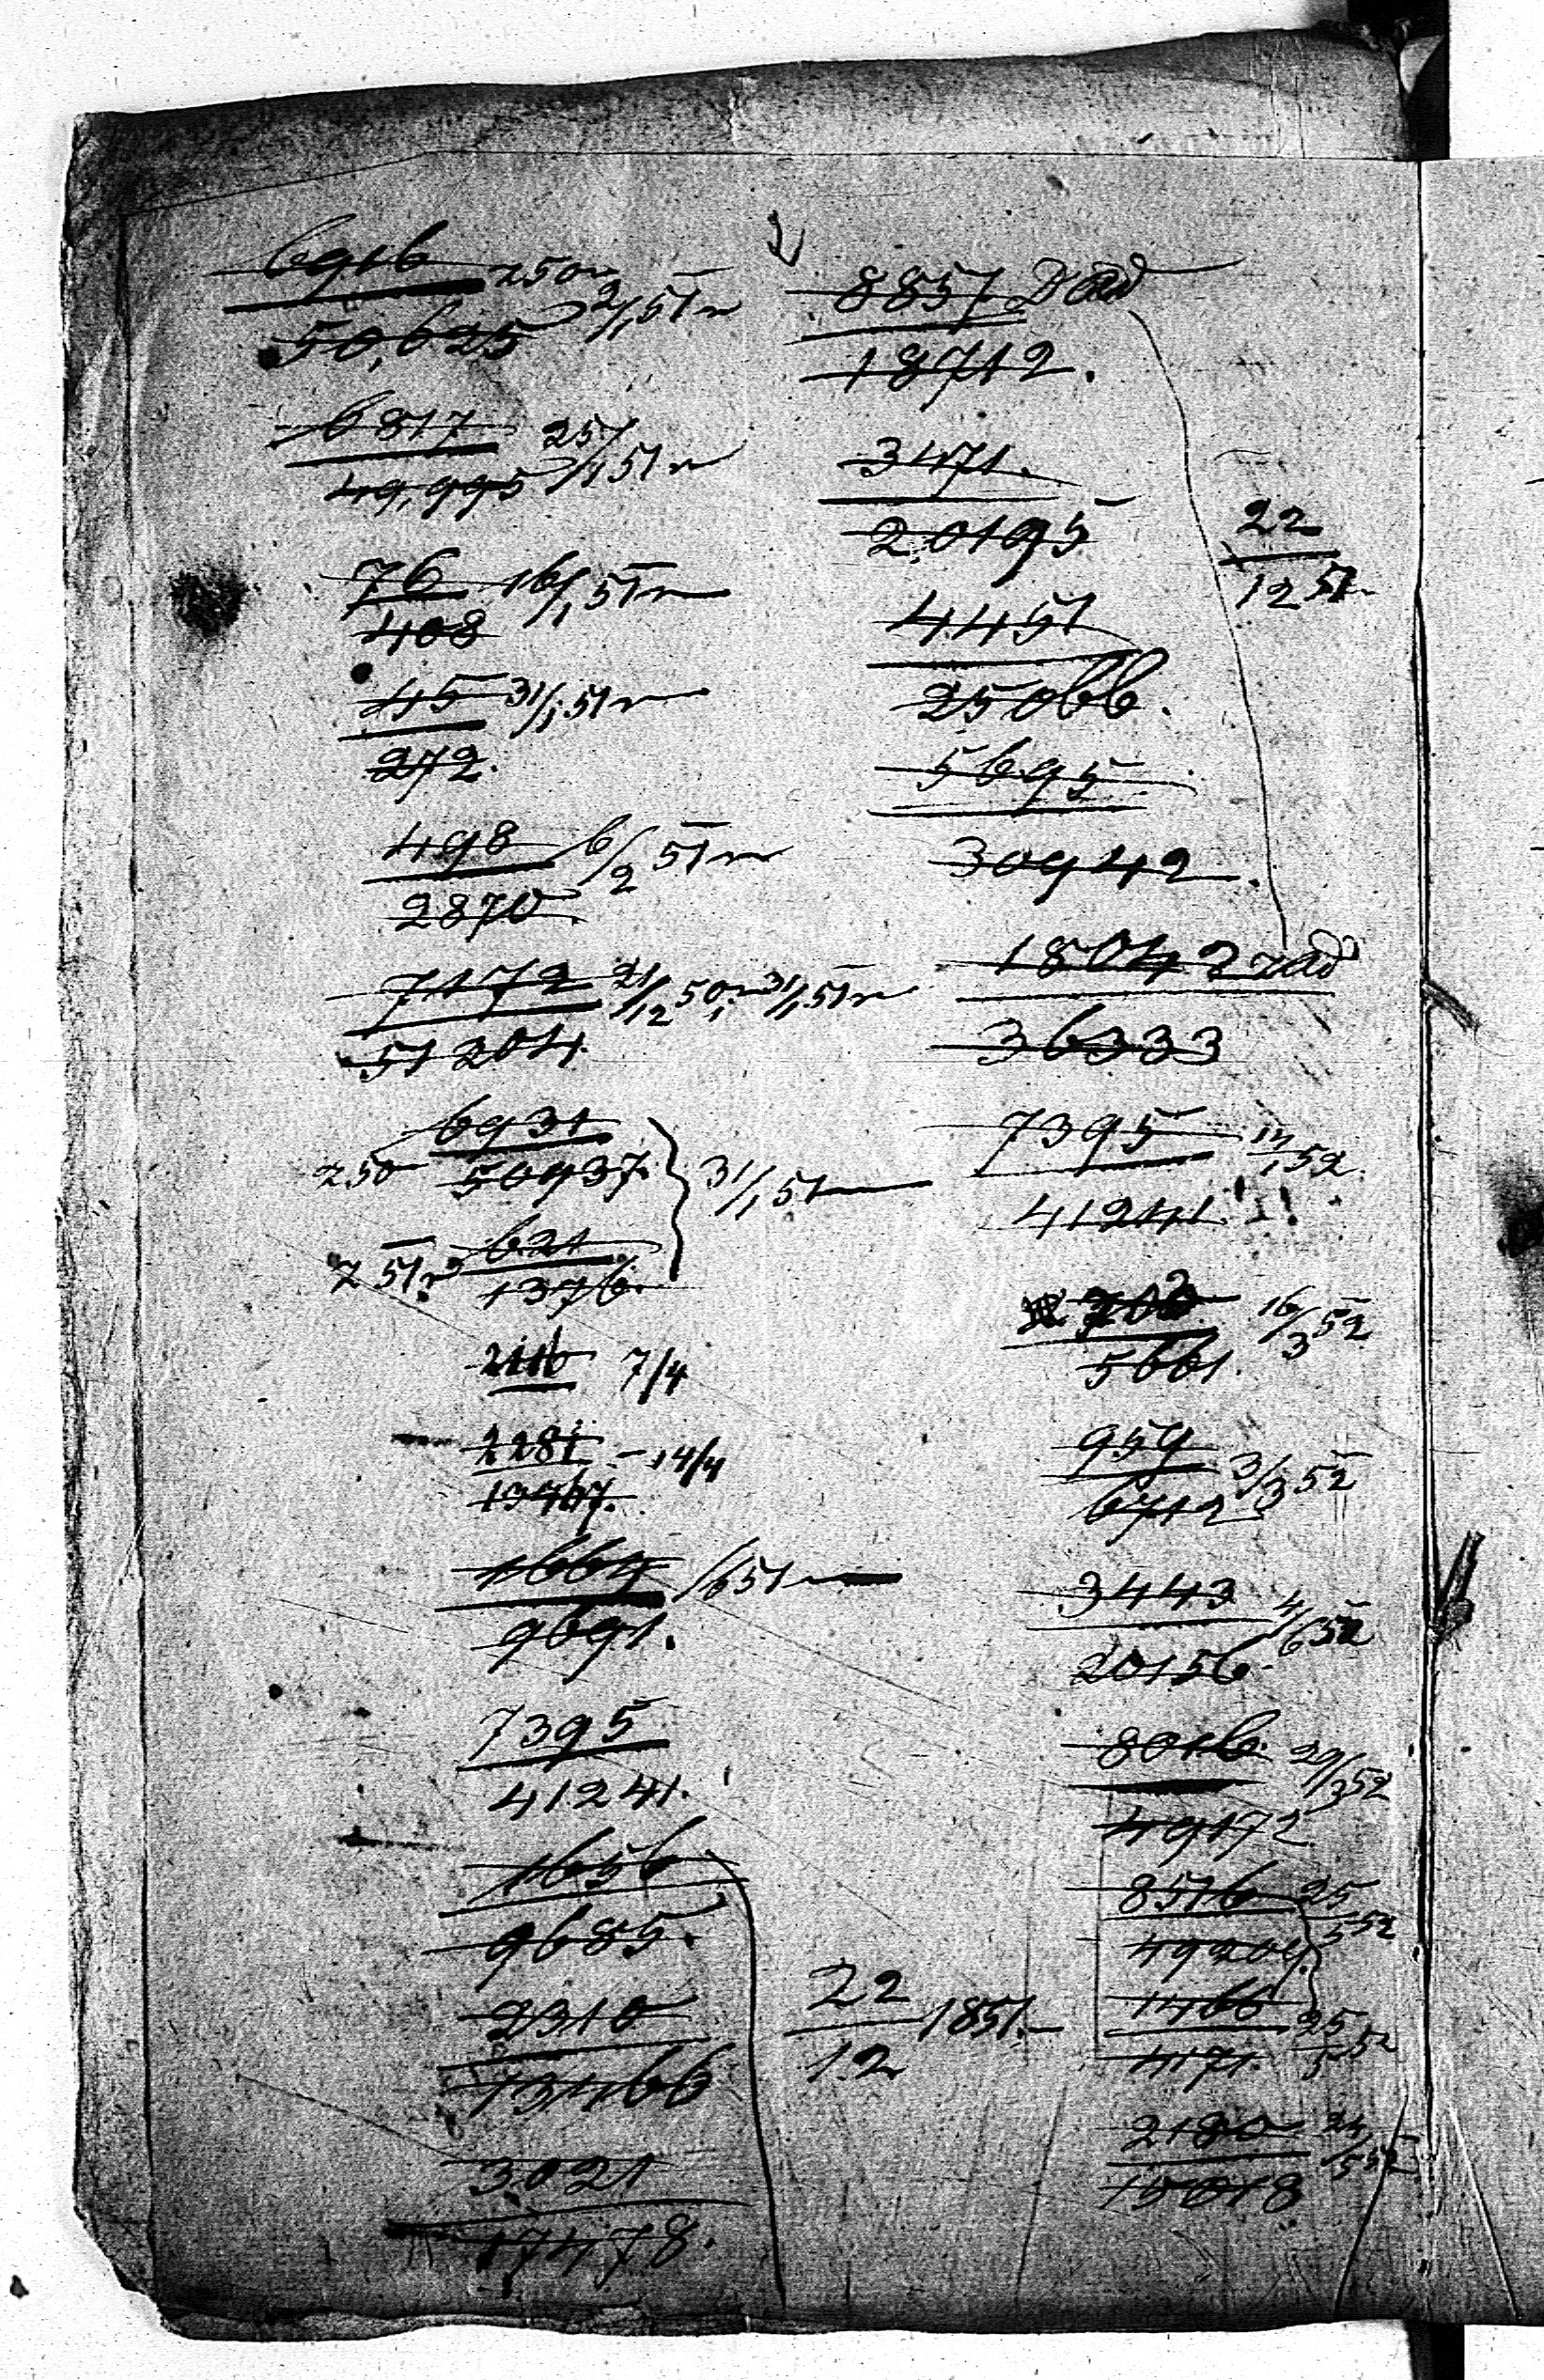 6916 250
50,625 2/1 51
6817 25/1 51
49,995
76 16/1 51
408
45 31/1 51
272.
498 6/2 51
2870
7172 21/12 50, 31/1 51
51204.
6931
250 50937. 31/1 51
251 621
1376.
2116 7/4
2281 - 14/4
13467.
1664 /6 51
9691.
7395
41241.
1656
9685.
2310
13466
3021
17478.
22/12 1851.
8857
18712.
3471.
20195
22/12 51
4451
25066.
5695
30942.
18042
36333
7395 52.
41241
703 16/3 52
5661.
959 3/3 52
6712
3443 4/6 52
20156.
8016. 29/3 52
49172
8516 25/5 52
49204.
1466 25/5 52
4171.
2180 24/5 52
15018